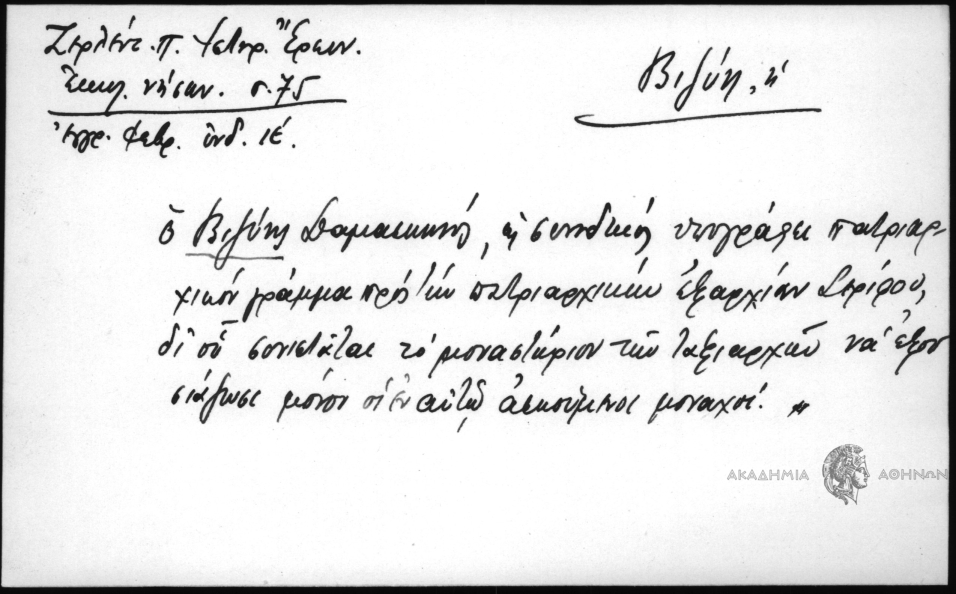 Ζερλέντ. Π. Ἱστορ. Ἔρευν.
Ἐκκλ. νήσων. σ. 75
ἔγγρ. Φεβρ. ἰνδ. ιε΄.
Βιζύη, ἡ
ὁ Βιζύης Δαμασκηνός, ὡς συνοδικός ὑπογράφει πατριαρ-
χικόν γράμμα πρός τήν πατριαρχικήν ἐξαρχίαν Σερίφου,
δι' οὗ συνιστᾶται τό μοναστήριον τῶν Ταξιαρχῶν νά ἐξου
σιάζωσι μόνοι οἱ ἐν αὐτῷ ἀσκούμενοι μοναχοί.
ΑΚΑΔΗΜΙΑ ΑΘΗΝΩΝ